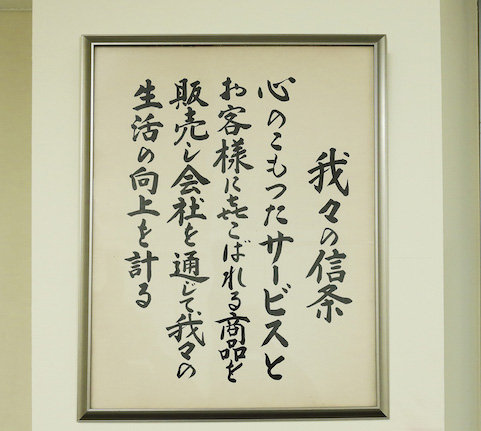 我々の信条
心のこもつたサービスと
お客様に㐂こばれる商品を
販売し会社を通じて我々の
生活の向上を計る